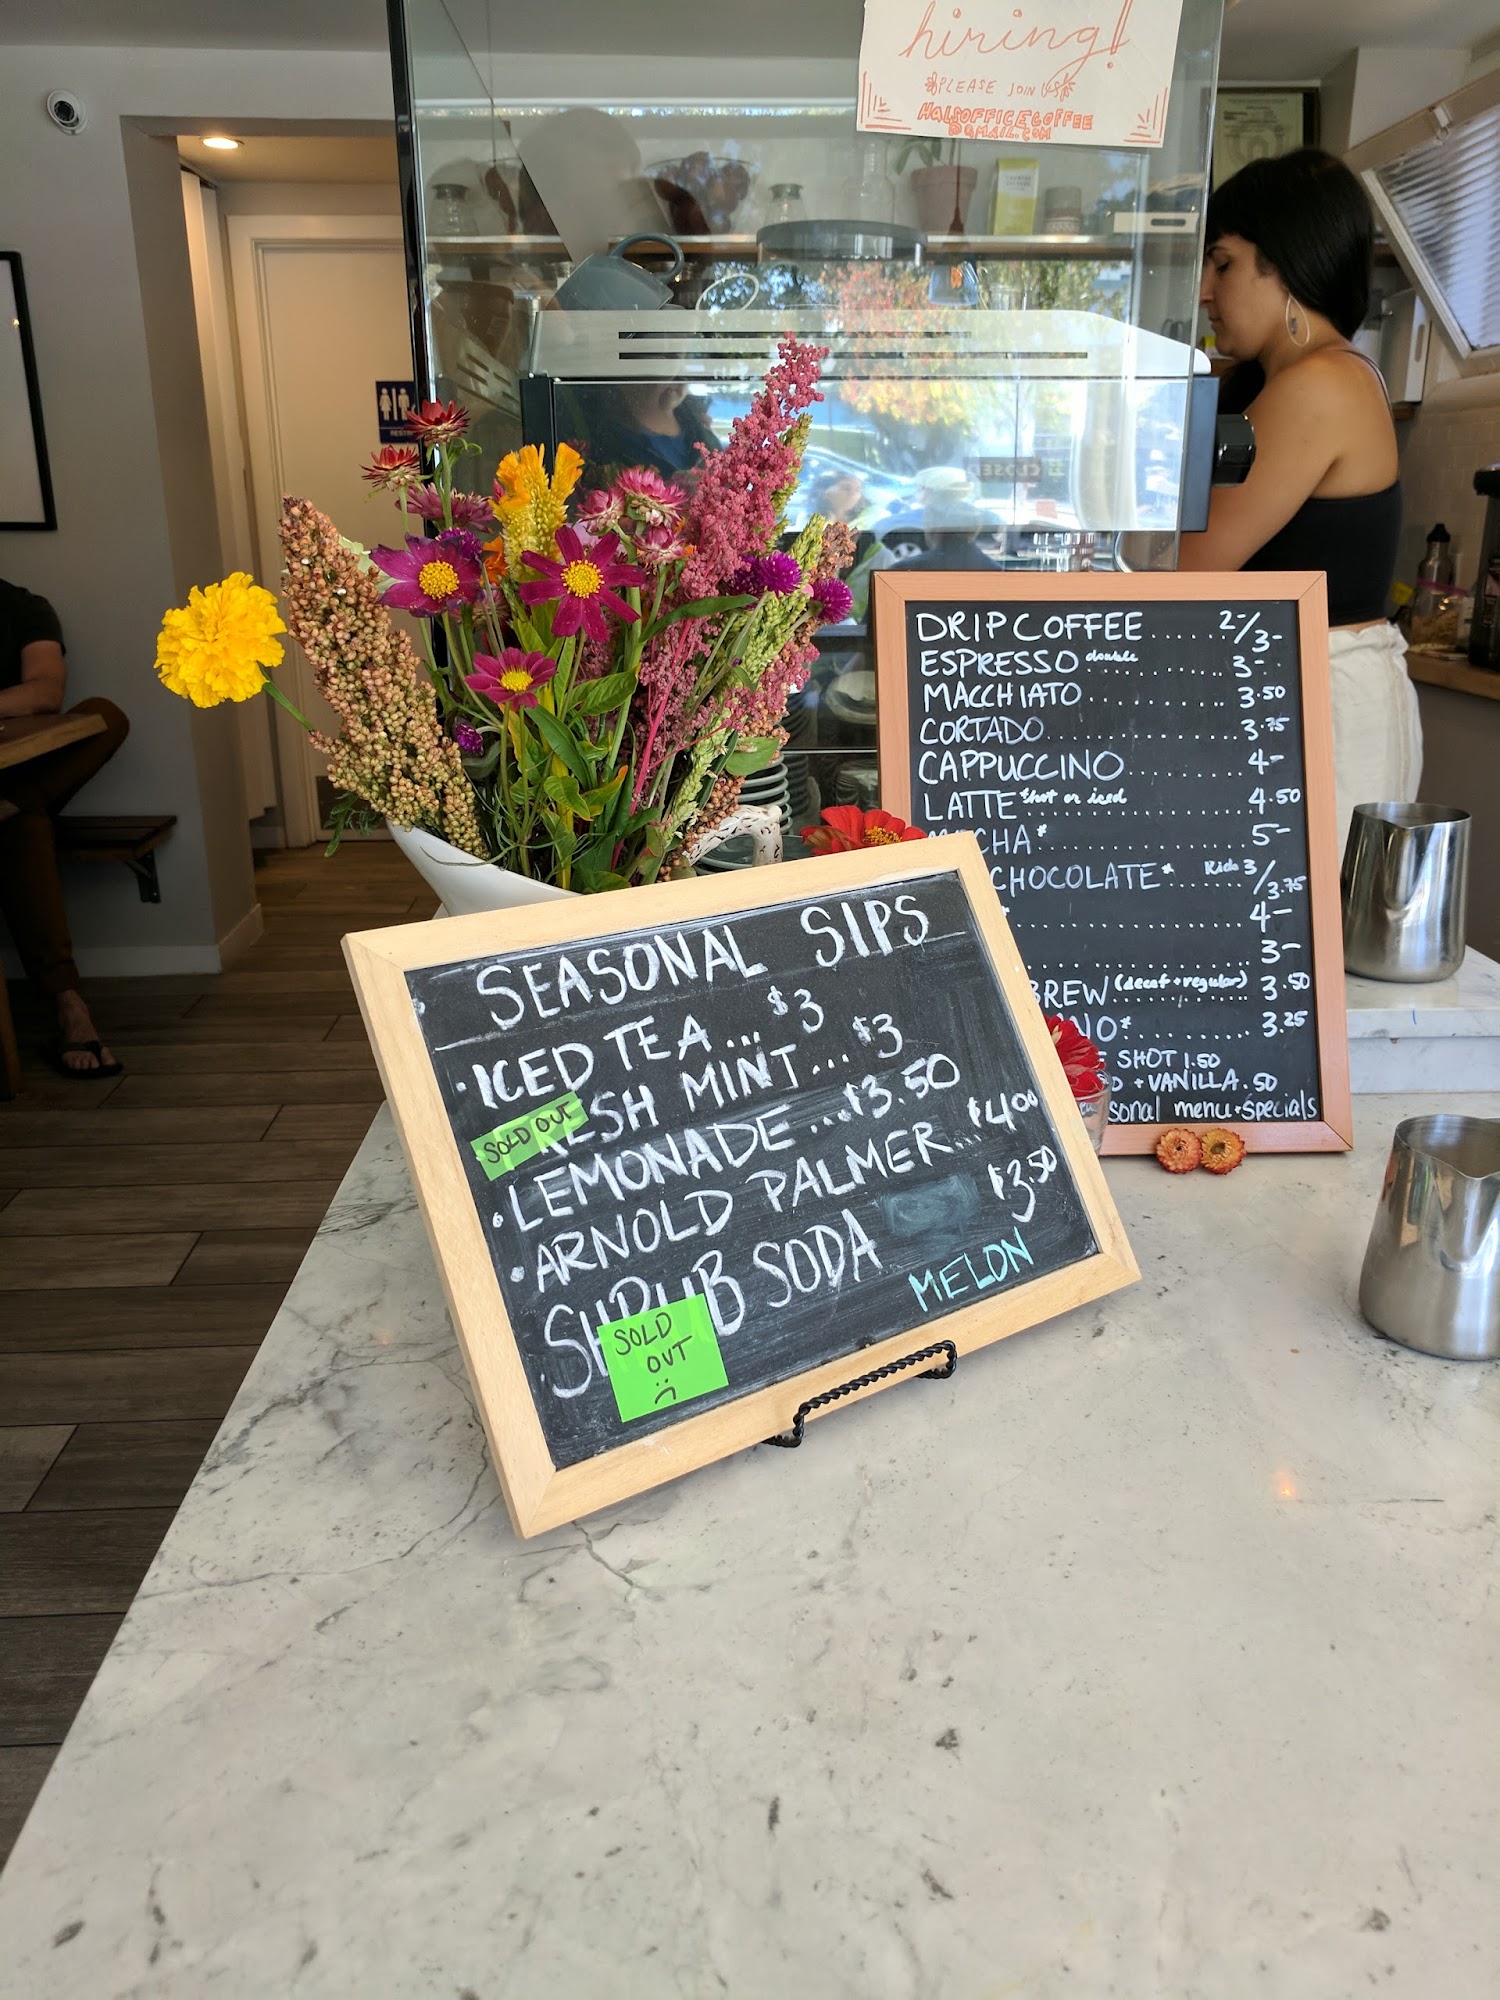 hiring!
PLEASE JOIN US
HALSOFFICECOFFEE
@GMAIL.COM
CLOSED
DRIP COFFEE ..... 2-/3-
ESPRESSO double ....... 3-
MACCHIATO .......... 3.50
CORTADO .............. 3.75
CAPPUCCINO ........ 4-
LATTE* hot or iced ......... 4.50
CHA* .............. 5-
CHOCOLATE* ...... Kids 3/3.75
* 4-
............... 3-
BREW (decaf + regular) ......... 3.50
NO* ......... 3.25
SHOT 1.50
+ VANILLA .50
sonal menu + specials
SEASONAL SIPS
• ICED TEA ... $3
RESH MINT ... $3
SOLD OUT
• LEMONADE ... $3.50
• ARNOLD PALMER ... $4.00
• SHRUB SODA $3.50
MELON
SOLD
OUT
:(